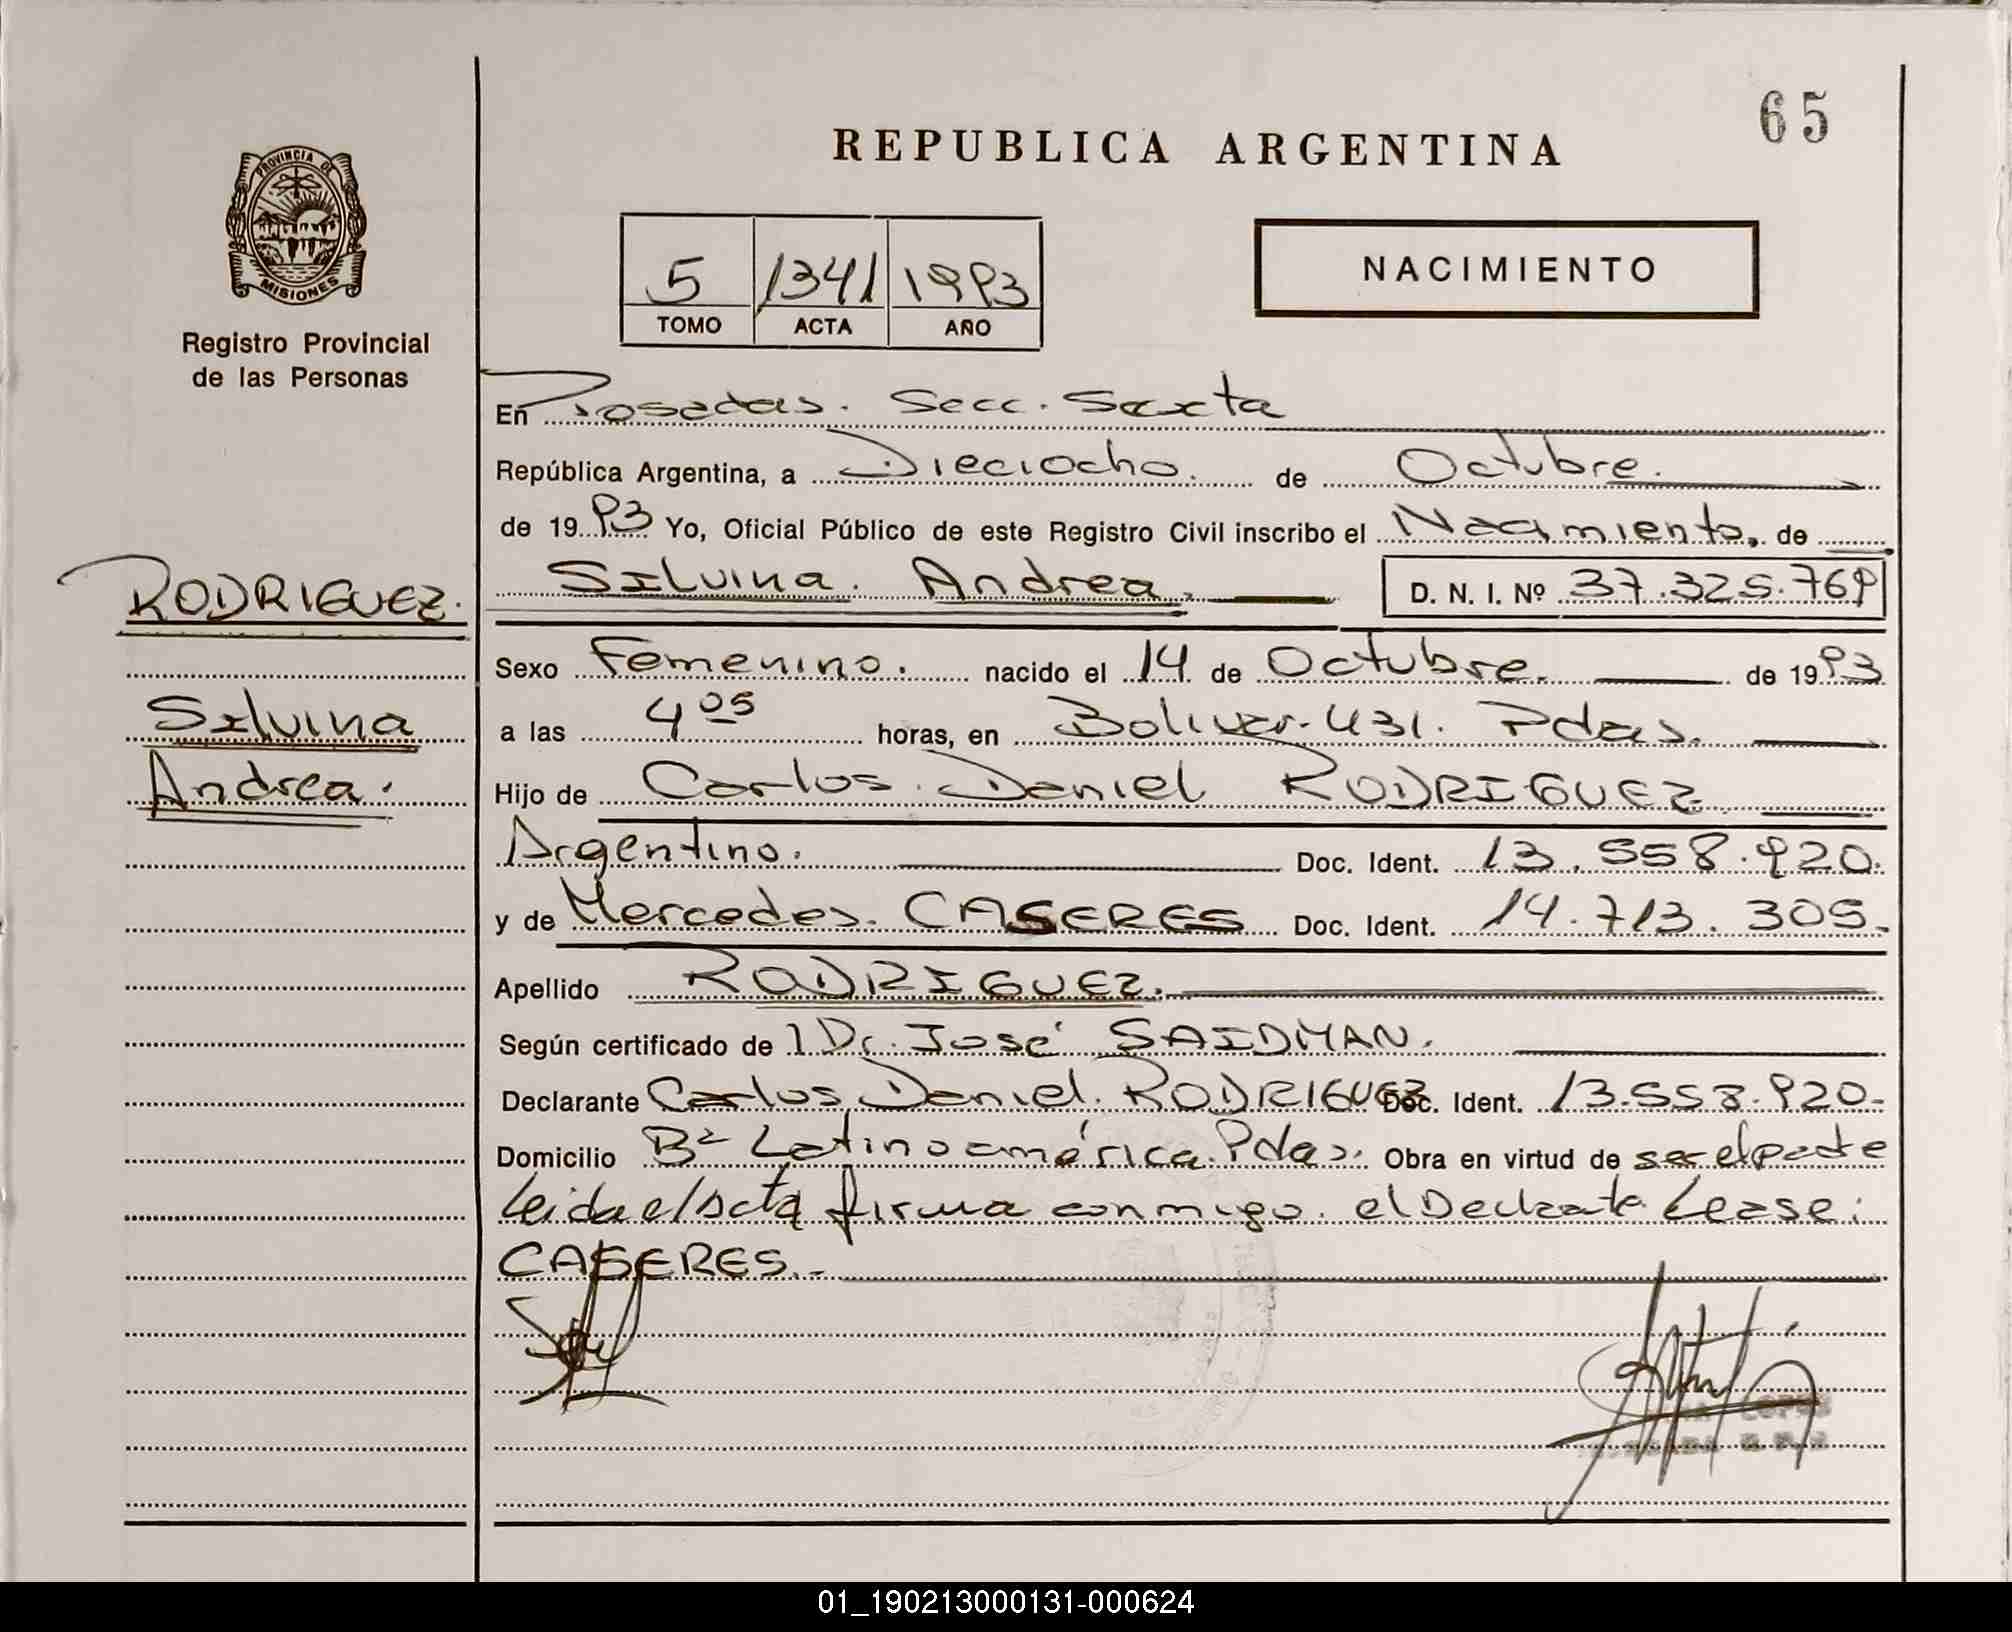 65
REPUBLICA ARGENTINA
PROVINCIA DE
MISIONES
Registro Provincial
de las Personas
5 1341 1993
TOMO ACTA AÑO
NACIMIENTO
En Posadas. Secc. Sexta
República Argentina, a Dieciocho. de Octubre.
de 1993 Yo, Oficial Público de este Registro Civil inscribo el Nacimiento, de
RODRIGUEZ.
Silvina
Andrea.
Silvina. Andrea. D. N. I. Nº 37.325.769
Sexo Femenino. nacido el 14 de Octubre. de 1993
a las 4 05 horas, en Bolivar. 431. Pdas.
Hijo de Carlos. Daniel RODRIGUEZ
Argentino. Doc. Ident. 13.558.920.
y de Mercedes. CASERES Doc. Ident. 14.713.305.
Apellido RODRIGUEZ.
Según certificado de 1 Dr. José SAIDMAN.
Declarante Carlos Daniel. RODRIGUEZ Doc. Ident. 13.558.920.
Domicilio Bº Latinoamérica. Pdas. Obra en virtud de ser el padre
Leida el Acta firma conmigo. el Declarante. Lease:
CASERES.-
01_190213000131-000624